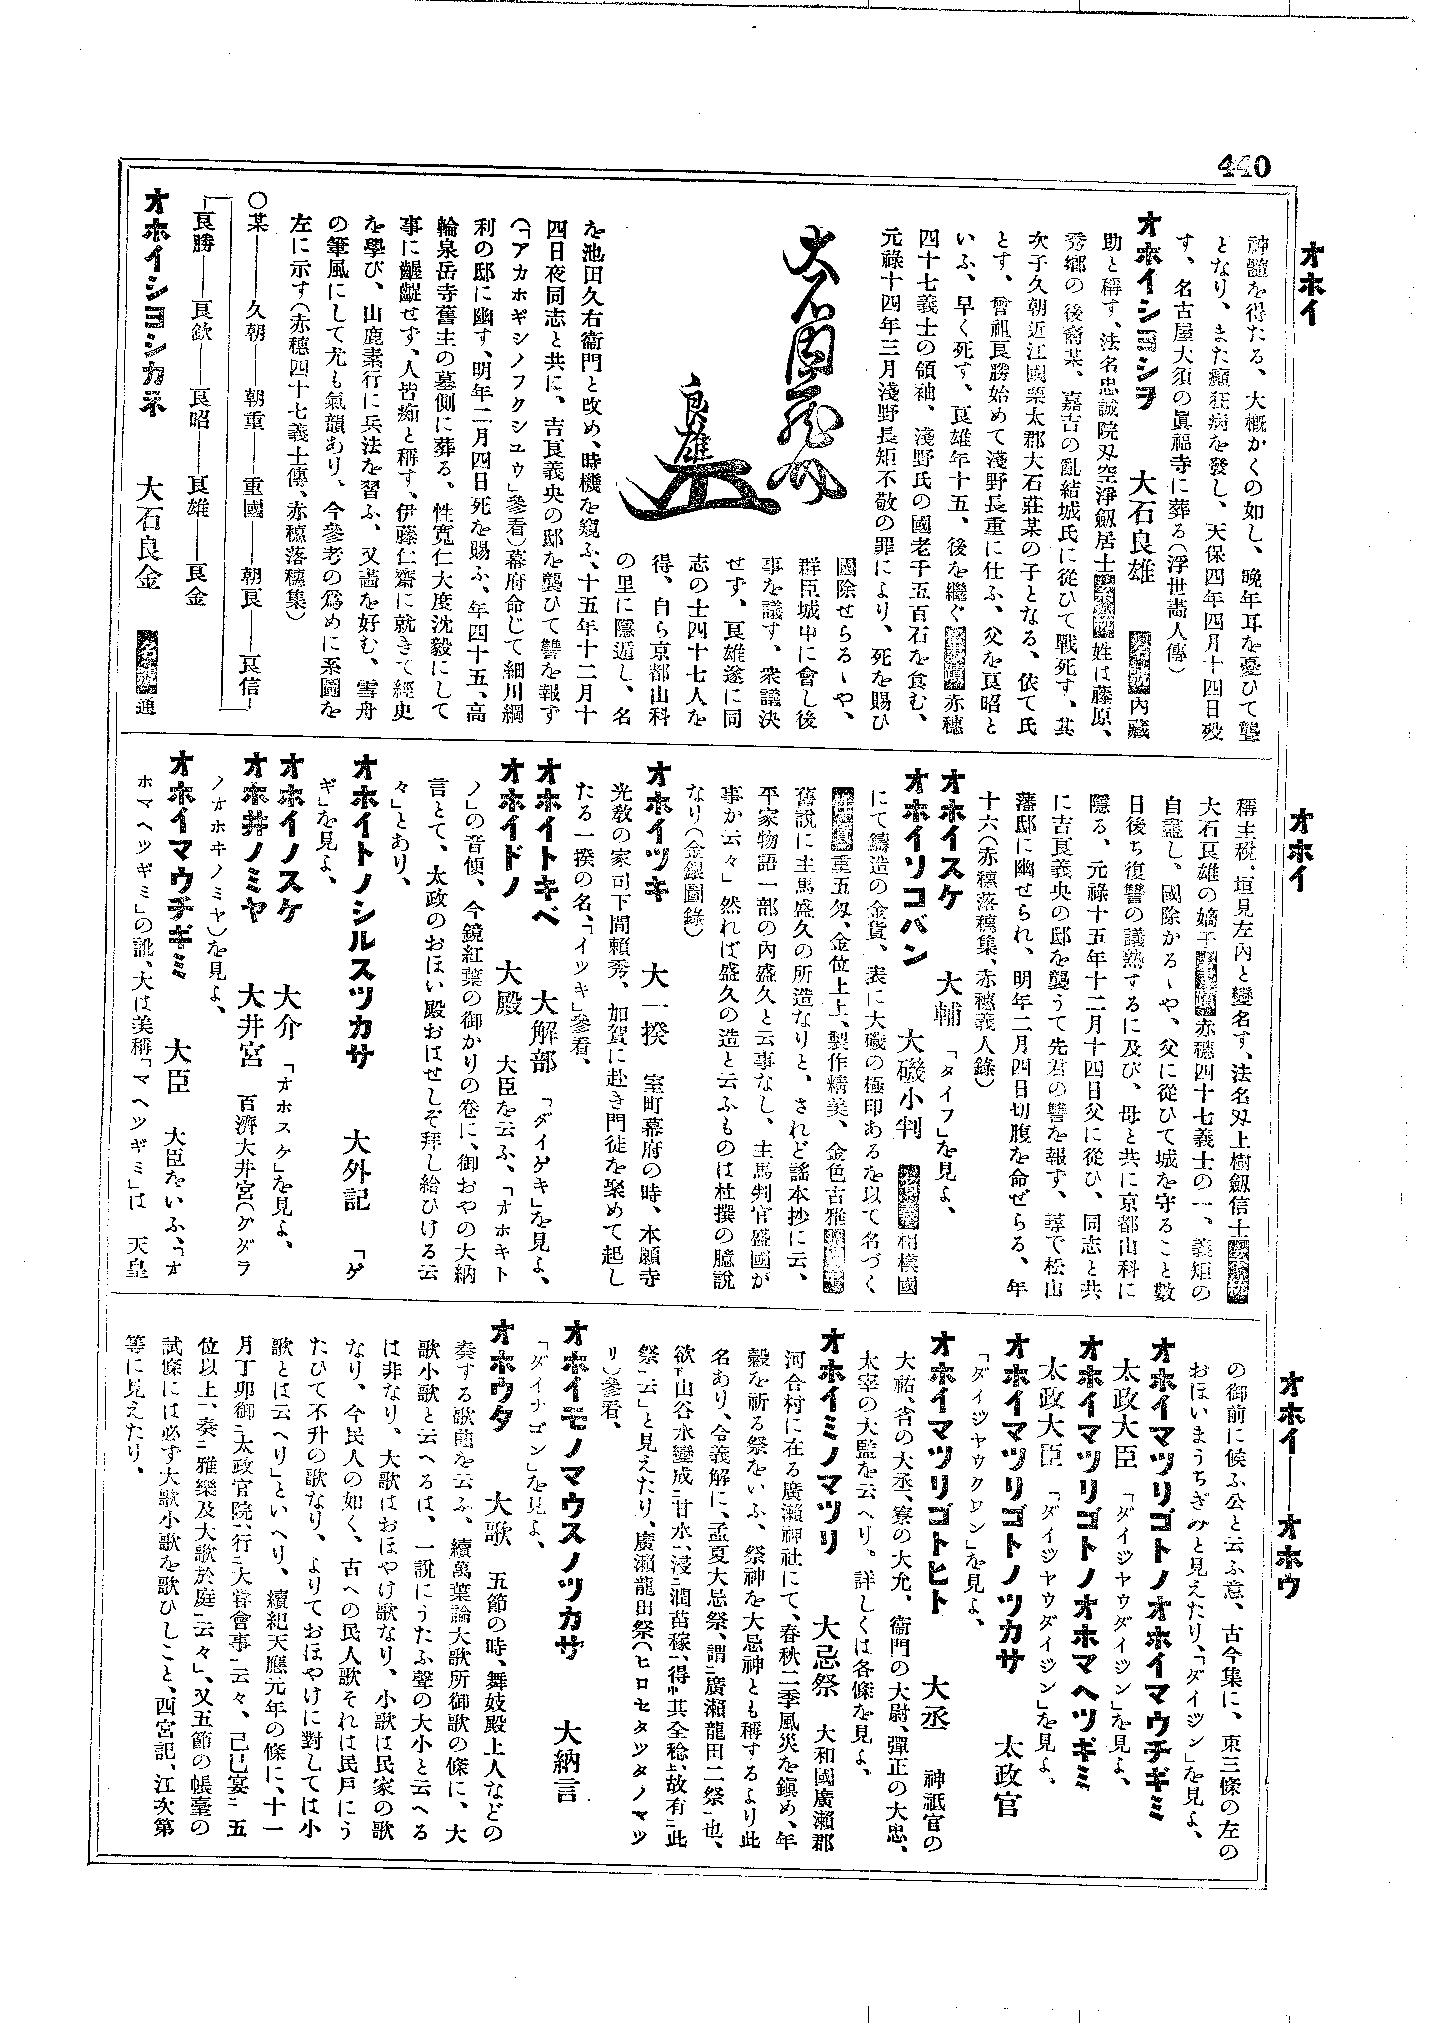 440
オホイ
神髓を得たる、大概かくの如し、晩年耳を憂ひて聾
となり、また癲狂病を發し、天保四年四月十四日歿
す、名古屋大須の眞福寺に葬る(浮世畵人傳)
オホイシヨシヲ 大石良雄 内藏
助と稱す、法名忠誠院刄空淨劔居士 姓は藤原、
秀郷の後裔某、嘉吉の亂結城氏に從ひて戰死す、其
次子久朝近江國栗太郡大石莊某の子となる、依て氏
とす、曾祖良勝始めて淺野長重に仕ふ、父を良昭と
いふ、早く死す、良雄年十五、後を繼ぐ 赤穗
四十七義士の領袖、淺野氏の國老千五百石を食む、
元祿十四年三月淺野長矩不敬の罪により、死を賜ひ
國除せらるゝや、
群臣城中に會し後
事を議す、衆議決
せず、良雄遂に同
志の士四十七人を
得、自ら京都山科
の里に隱遁し、名
大石内藏助
良雄
を池田久右衞門と改め、時機を窺ふ、十五年十二月十
四日夜同志と共に、吉良義央の邸を襲ひて讐を報ず
(「アカホギシノフクシユウ」參看)幕府命じて細川綱
利の邸に幽す、明年二月四日死を賜ふ、年四十五、高
輪泉岳寺舊主の墓側に葬る、性寬仁大度沈毅にして
事に齷齪せず、人皆痴と稱す、伊藤仁齋に就きて經史
を學び、山鹿素行に兵法を習ふ、又畵を好む、雪舟
の筆風にして尤も氣韻あり、今參考の爲めに系圖を
左に示す(赤穗四十七義士傳、赤穗落穗集)
○某――久朝――朝重――重國――朝良――良信
良勝――良欽――良昭――良雄――良金
オホイシヨシカネ 大石良金 通
オホイ
稱主税、垣見左内と變名す、法名刄上樹劔信士
大石良雄の嫡子 赤穗四十七義士の一、義矩の
自盡し、國除かるゝや、父に從ひて城を守ること數
日後ち復讐の議熟するに及び、母と共に京都山科に
隱る、元祿十五年十二月十四日父に從ひ、同志と共
に吉良義央の邸を襲うて先君の讐を報ず、尋で松山
藩邸に幽せられ、明年二月四日切腹を命ぜらる、年
十六(赤穗落穗集、赤穗義人錄)
オホイスケ 大輔 「タイフ」を見よ、
オホイソコバン 大磯小判 相模國
にて鑄造の金貨、表に大磯の極印あるを以て名づく
重五匁、金位上上、製作精美、金色古雅
舊說に主馬盛久の所造なりと、されど謠本抄に云、
平家物語一部の内盛久と云事なし、主馬判官盛國が
事か云々」然れば盛久の造と云ふものは杜撰の臆說
なり(金銀圖錄)
オホイツキ 大一揆 室町幕府の時、本願寺
光敎の家司下間賴秀、加賀に赴き門徒を聚めて起し
たる一揆の名、「イツキ」參看、
オホイトキベ 大解部 「ダイゲキ」を見よ、
オホイドノ 大殿 大臣を云ふ、「オホキト
ノ」の音便、今鏡紅葉の御かりの卷に、御おやの大納
言とて、太政のおほい殿おはせしぞ拜し給ひける云
々」とあり、
オホイトノシルスツカサ 大外記 「ゲ
ギ」を見よ、
オホイノスケ 大介 「オホスケ」を見よ、
オホ井ノミヤ 大井宮 百濟大井宮(クダラ
ノオホキノミヤ)を見よ、
オホイマウチギミ 大臣 大臣をいふ、「オ
ホマヘツギミ」の訛、大は美稱「マヘツギミ」は 天皇
オホイ――オホウ
の御前に候ふ公と云ふ意、古今集に、東三條の左の
おほいまうちぎみと見えたり、「ダイジン」を見よ、
オホイマツリゴトノオホイマウチギミ
太政大臣 「ダイジヤウダイジン」を見よ、
オホイマツリゴトノオホマヘツギミ
太政大臣 「ダイジヤウダイジン」を見よ、
オホイマツリゴトノツカサ 太政官
「ダイジヤウクワン」を見よ、
オホイマツリゴトヒト 大丞 神祇官の
大祐、省の大丞、寮の大允、衞門の大尉、彈正の大忠、
太宰の大監を云へり、詳しくは各條を見よ、
オホイミノマツリ 大忌祭 大和國廣瀨郡
河合村に在る廣瀨神社にて、春秋二季風災を鎭め、年
穀を祈る祭をいふ、祭神を大忌神とも稱するより此
名あり、令義解に、孟夏大忌祭、謂廣瀨龍田二祭也、
欲山谷水變成甘水、浸潤苗稼、得其全稔、故有此
祭云」と見えたり、廣瀨龍田祭(ヒロセタツタノマツ
リ)參看、
オホイモノマウスノツカサ 大納言
「ダイナゴン」を見よ、
オホウタ 大歌 五節の時、舞妓殿上人などの
奏する歌曲を云ふ、續萬葉論大歌所御歌の條に、大
歌小歌と云へるは、一說にうたふ聲の大小と云へる
は非なり、大歌はおほやけ歌なり、小歌は民家の歌
なり、今民人の如く、古への民人歌それは民戸にう
たひて不升の歌なり、よりておほやけに對しては小
歌とは云へり」といへり、續紀天應元年の條に、十一
月丁卯御太政官院、行大嘗會事云々、己巳宴五
位以上、奏雅樂及大歌於庭云々」、又五節の帳臺の
試庭には必ず大歌小歌を歌ひしこと、西宮記、江次第
等に見えたり、